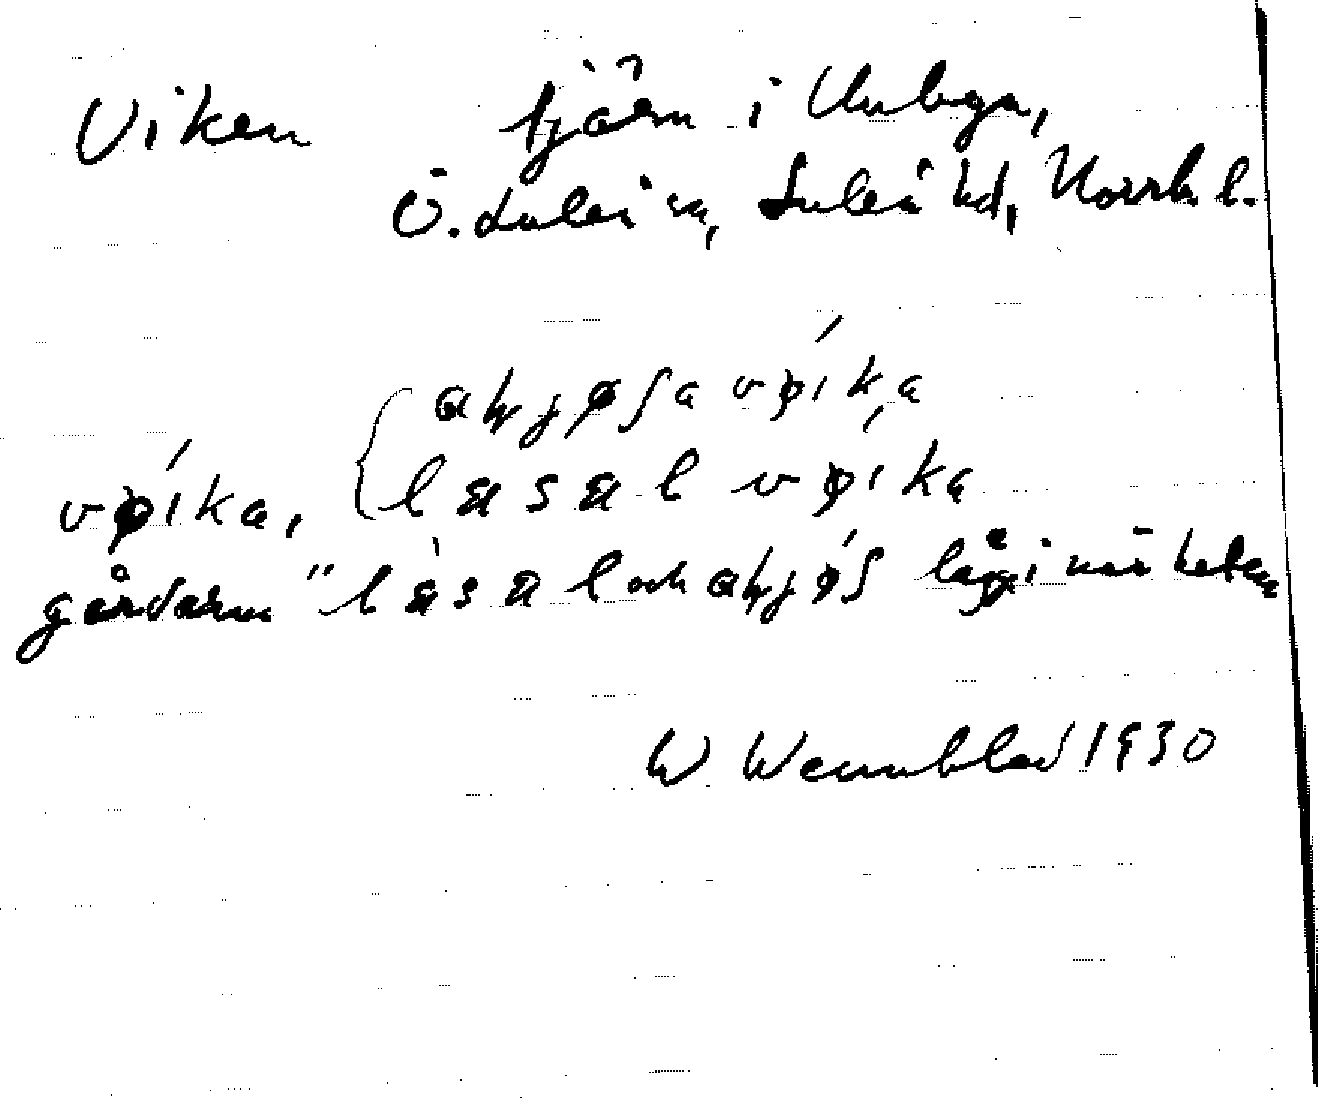 Viken tjärn i Unbyn,
Ö. Luleå sn, Luleå hd, Norrb. l.
vøíka, { aħjøʃa vøíka
lasal vøíka
gårdarna "låsal och aħjøʃ låg i närheten
W Wennblad 1930